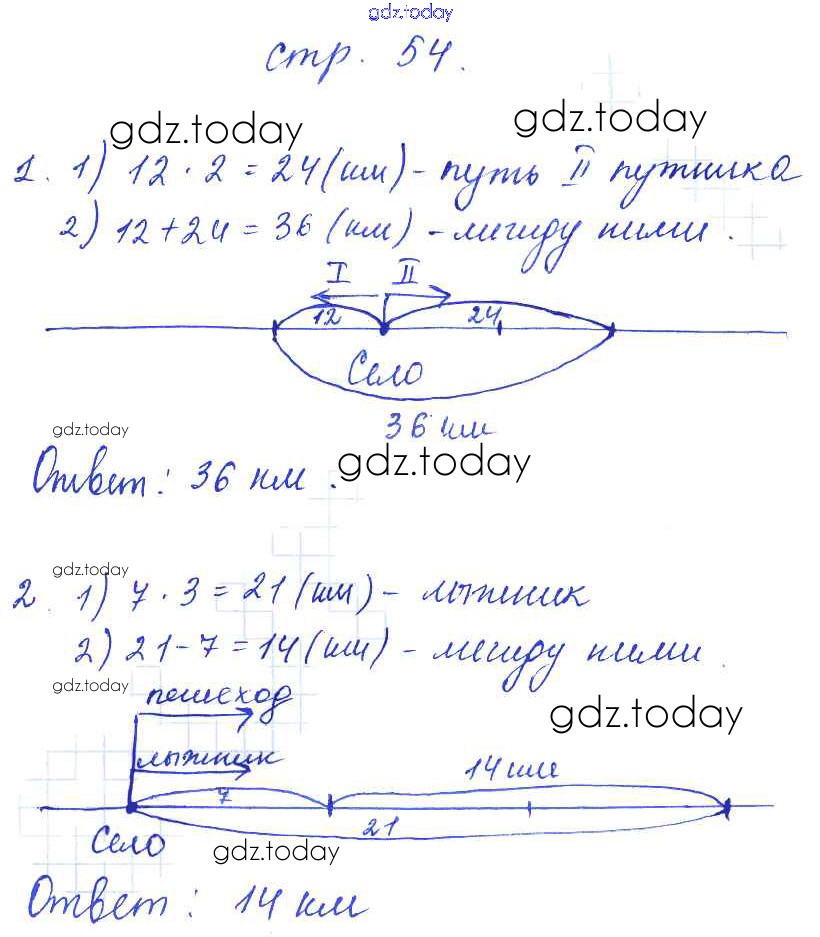 gdz.today
стр. 54.
gdz.today gdz.today
1. 1) 12 · 2 = 24 (км) - путь II путника
2) 12 + 24 = 36 (км) - между ними.
I II
12 24
Село
36 км
gdz.today
Ответ: 36 км.
gdz.today
gdz.today
2. 1) 7 · 3 = 21 (км) - лыжник
2) 21 - 7 = 14 (км) - между ними.
gdz.today
пешеход
gdz.today
лыжник
14 км
7
21
Село
gdz.today
Ответ: 14 км